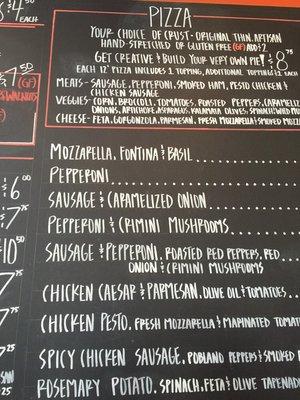 4
EACH
7 50 (GF)
WALNUTS
6
7
10 50
7
7
7 25
7 25
PIZZA
YOUR CHOICE OF CRUST - ORIGINAL THIN, ARTISAN
HAND-STRETCHED OR GLUTEN FREE (GF) ADD $2
GET CREATIVE & BUILD YOUR VERY OWN PIE! $8 75
EACH 12" PIZZA INCLUDES 1 TOPPING, ADDITIONAL TOPPINGS
MEATS - SAUSAGE, PEPPERONI, SMOKED HAM, PESTO CHICKEN &
CHICKEN SAUSAGE
VEGGIES - CORN, BROCCOLI, TOMATOES, ROASTED PEPPERS, CARAMELIZED
ONIONS, ARTICHOKE, ASPARAGUS, KALAMATA OLIVES, SPINACH
CHEESE - FETA, GORGONZOLA, PARMESAN, FRESH MOZZARELLA & SMOKED
MOZZARELLA, FONTINA & BASIL
PEPPERONI
SAUSAGE & CARAMELIZED ONION
PEPPERONI & CRIMINI MUSHROOMS
SAUSAGE & PEPPERONI, ROASTED RED PEPPERS, RED
ONION & CRIMINI MUSHROOMS
CHICKEN CAESAR & PARMESAN, OLIVE OIL & TOMATOES
CHICKEN PESTO, FRESH MOZZARELLA & MARINATED TOMATOES
SPICY CHICKEN SAUSAGE, POBLANO PEPPERS & SMOKED
ROSEMARY POTATO, SPINACH, FETA & OLIVE TAPENADE